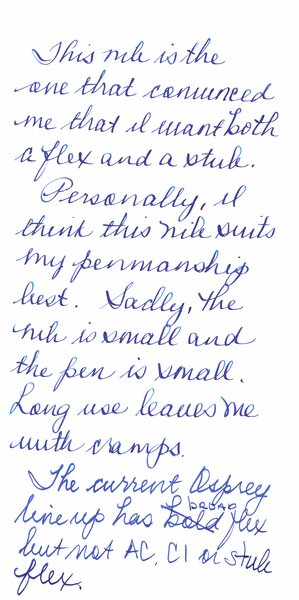 This nib is the
one that convinced
me that I want both
a flex and a stub.
Personally, I
think this nib suits
my penmanship
best. Sadly, the
nib is small and
the pen is small.
Long use leaves me
with cramps.
The current Osprey
BROAD
line up has bold flex
but not AC, CI or stub
flex.